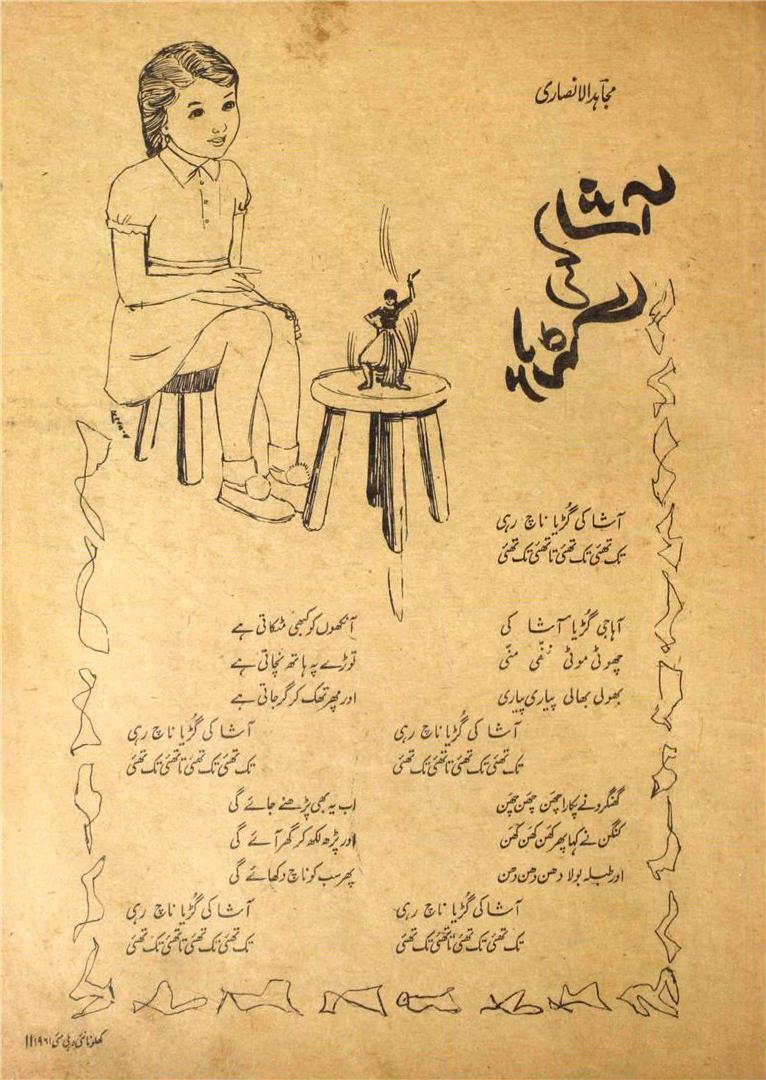 مجاہد الانصاری
آشا
کی
گڑیا
آشا کی گڑیا ناچ رہی
تک تھئی تک تھئی تا تھئی تک تھئی
آہا جی گڑیا آشا کی
چھوٹی موٹی ننّھی منّی
بھولی بھالی پیاری پیاری
آشا کی گڑیا ناچ رہی
تک تھئی تک تھئی تا تھئی تک تھئی
گھنگرو نے پکارا چھن چھن چھن
کنگن نے کہا پھر کھن کھن کھن
اور طبلہ بولا دھن دھن دھن
آشا کی گڑیا ناچ رہی
تک تھئی تک تھئی تا تھئی تک تھئی
آنکھوں کو کبھی مٹکاتی ہے
توڑے پہ ہاتھ نچاتی ہے
اور پھر تھک کر گر جاتی ہے
آشا کی گڑیا ناچ رہی
تک تھئی تک تھئی تا تھئی تک تھئی
اب یہ بھی پڑھنے جائے گی
اور پڑھ لکھ کر گھر آئے گی
پھر سب کو ناچ دکھائے گی
آشا کی گڑیا ناچ رہی
تک تھئی تک تھئی تا تھئی تک تھئی
کھلونا نئی دہلی مئی ۱۹۶۱ ||